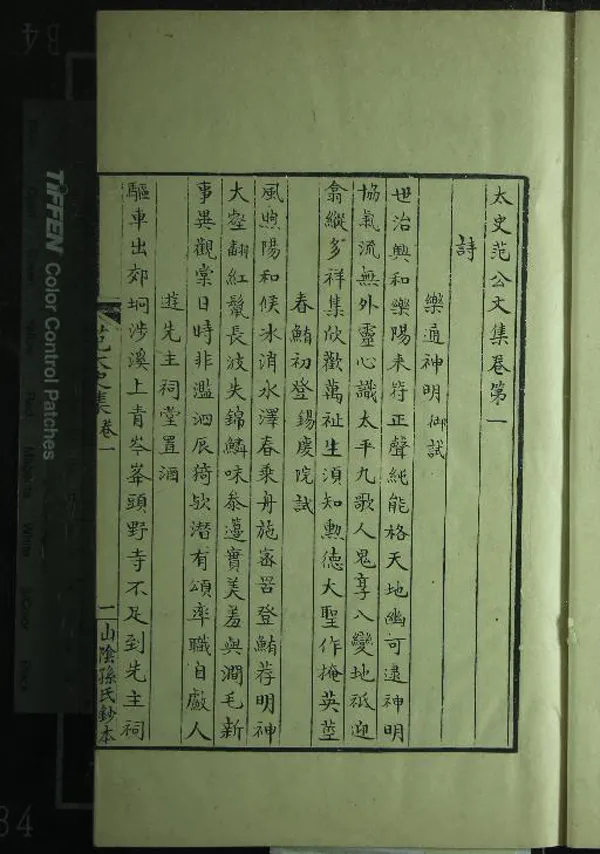 太史范公文集卷第一
詩
樂通神明御試
世治興和樂陽来符正聲純能格天地幽可逮神明
協氣流無外靈心識太平九歌人鬼享八變地祇迎
翕縱多祥集欣歡萬祉生須知勲德大聖作掩英莖
春鮪初登錫慶院試
風煦陽和候氷消水澤春乗舟施罟登鮪荐明神
大壑翻紅鬛長波失錦鱗味叅薧實美羞與澗毛新
事異觀棠日時非濫泗辰猗歟潜有頌率職自䱷人
遊先主祠堂置酒
驅車出郊坰涉溪上青岑峯頭野寺不足到先主祠
范太史集 卷一
一 山陰孫氏鈔本
TIFFEN Color Control Patches
B4